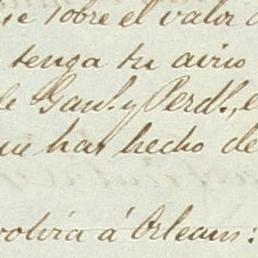 se sobre el valor
tenga tu avio
de Gau. y Perd.,
que has hecho de
volvia á Orleans: